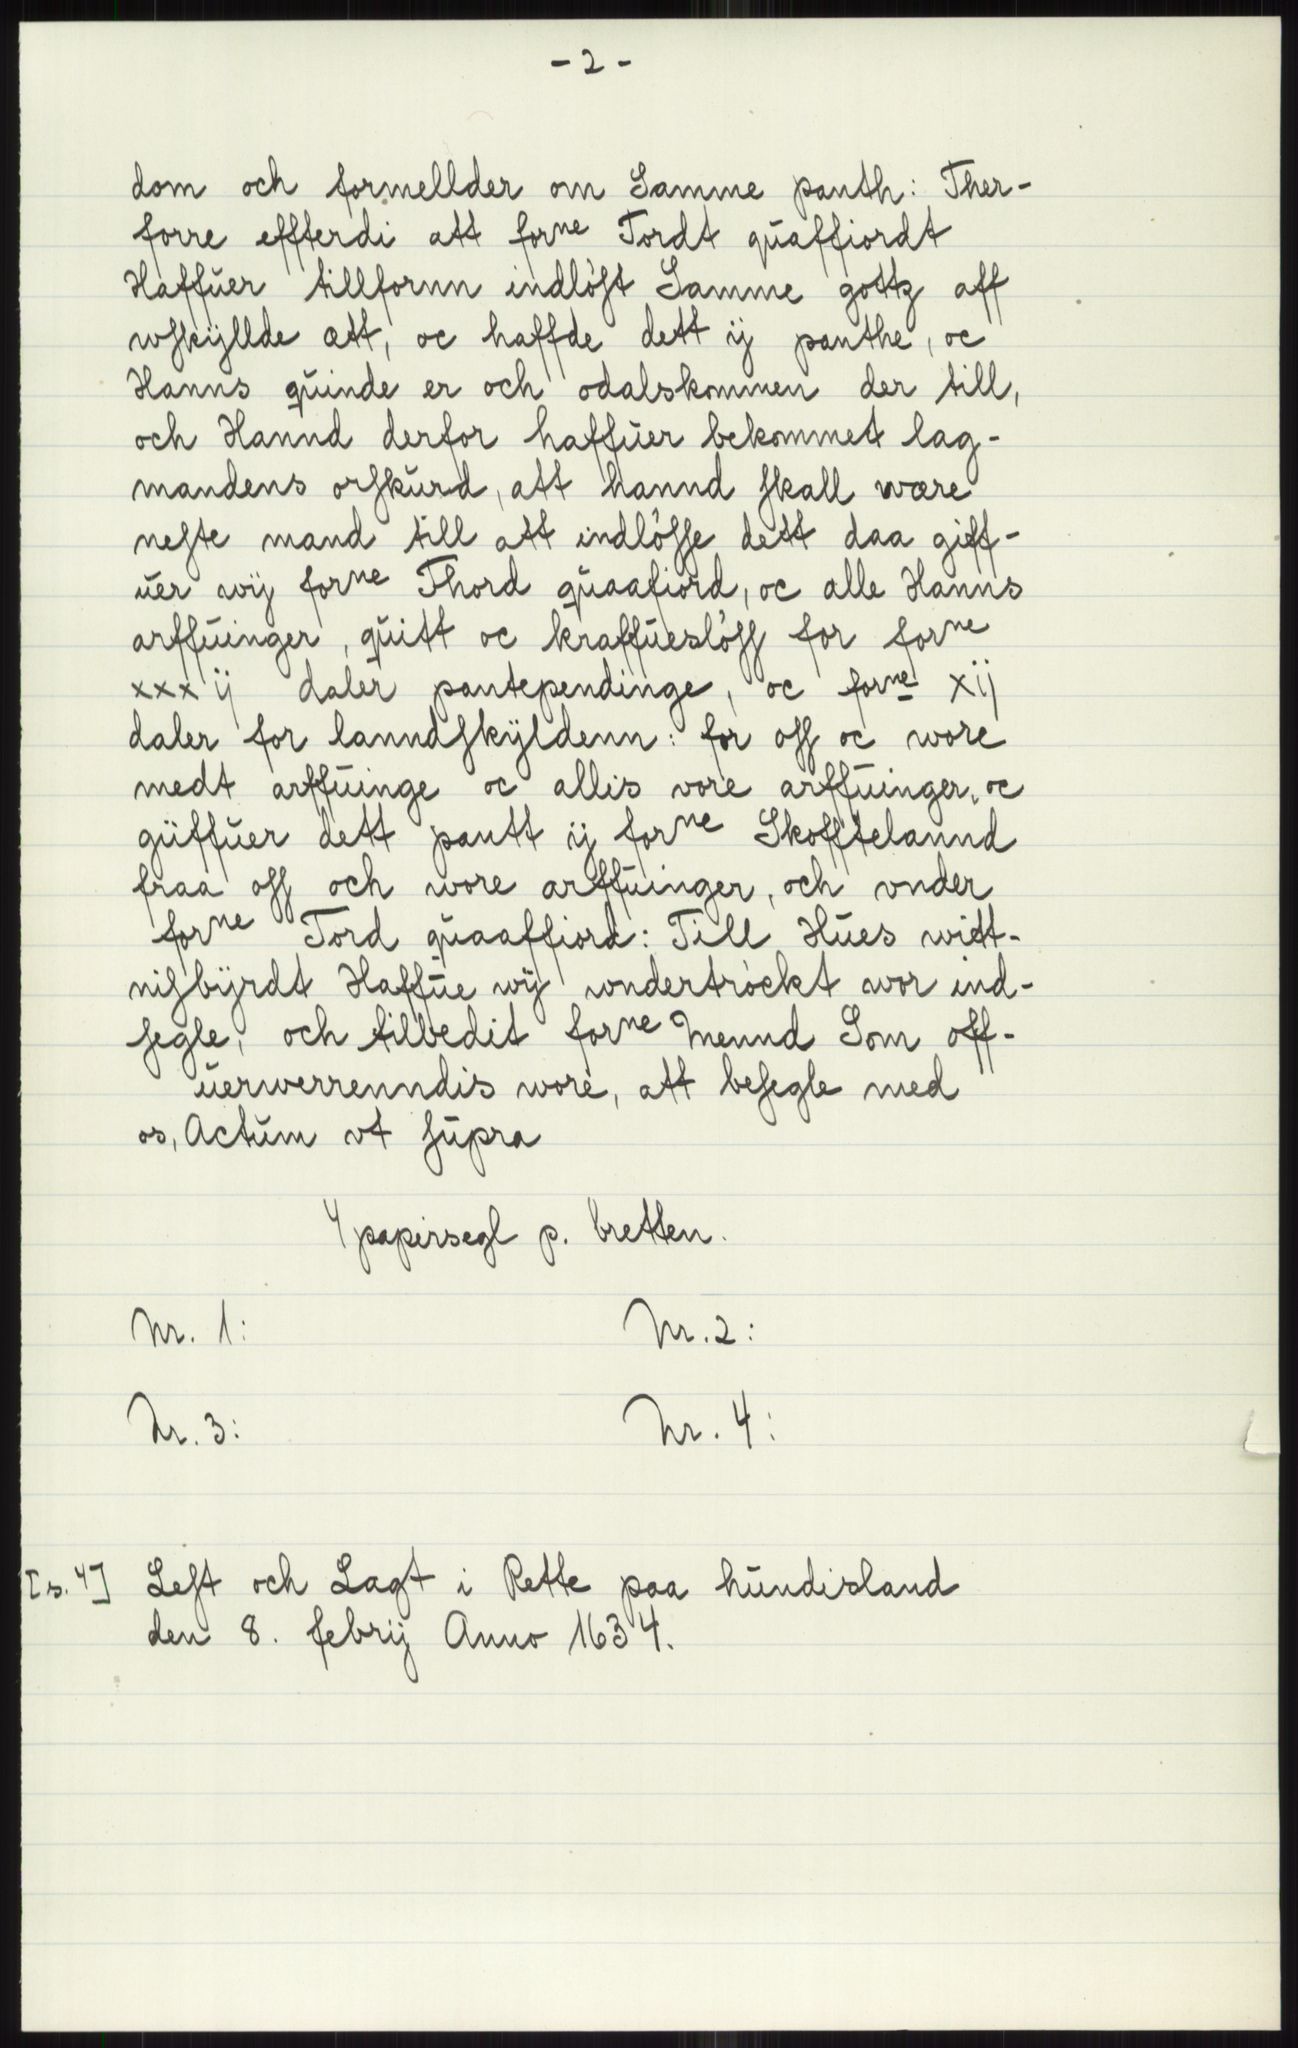 - 2 -
dom och formellder om Samme panth: Ther-
forre effterdi att forne Tordt quaffiordt
Haffuer tillfornn indlöst Samme gottz aff
wskyllde ætt, oc haffde dett ij panthe, oc
Hanns quinde er och odalskommen der till,
och Hannd derfor haffuer bekommet lag-
mandens orskurd, att hannd skall wære
neste mand till att indlösse dett daa giff-
uer wij forne Thord quaafiord, oc alle Hanns
arffuinger, quitt oc kraffueslöss for forne
xxx ij daler pantependinge, oc forne xij
daler for lanndskyldenn: for oss oc wore
medt arffuinge oc allis vore arffuinger, oc
giiffuer dett pantt ij forne Skofftelannd
fraa oss och wore arffuinger, och vnder
forne Tord quaaffiord: Till Hues witt-
nisbyrdt Haffue wij wndertröckt wor ind-
segle, och tilbedit forne mennd Som off-
uerwerrenndis wore, att besegle med
os, Actum vt supra
4 papirsegl p. bretten.
Nr. 1: Nr. 2:
Nr. 3: Nr. 4:
[s. 4] Lest och Lagt i Rette paa hundisland
den 8. febrij Anno 1634.